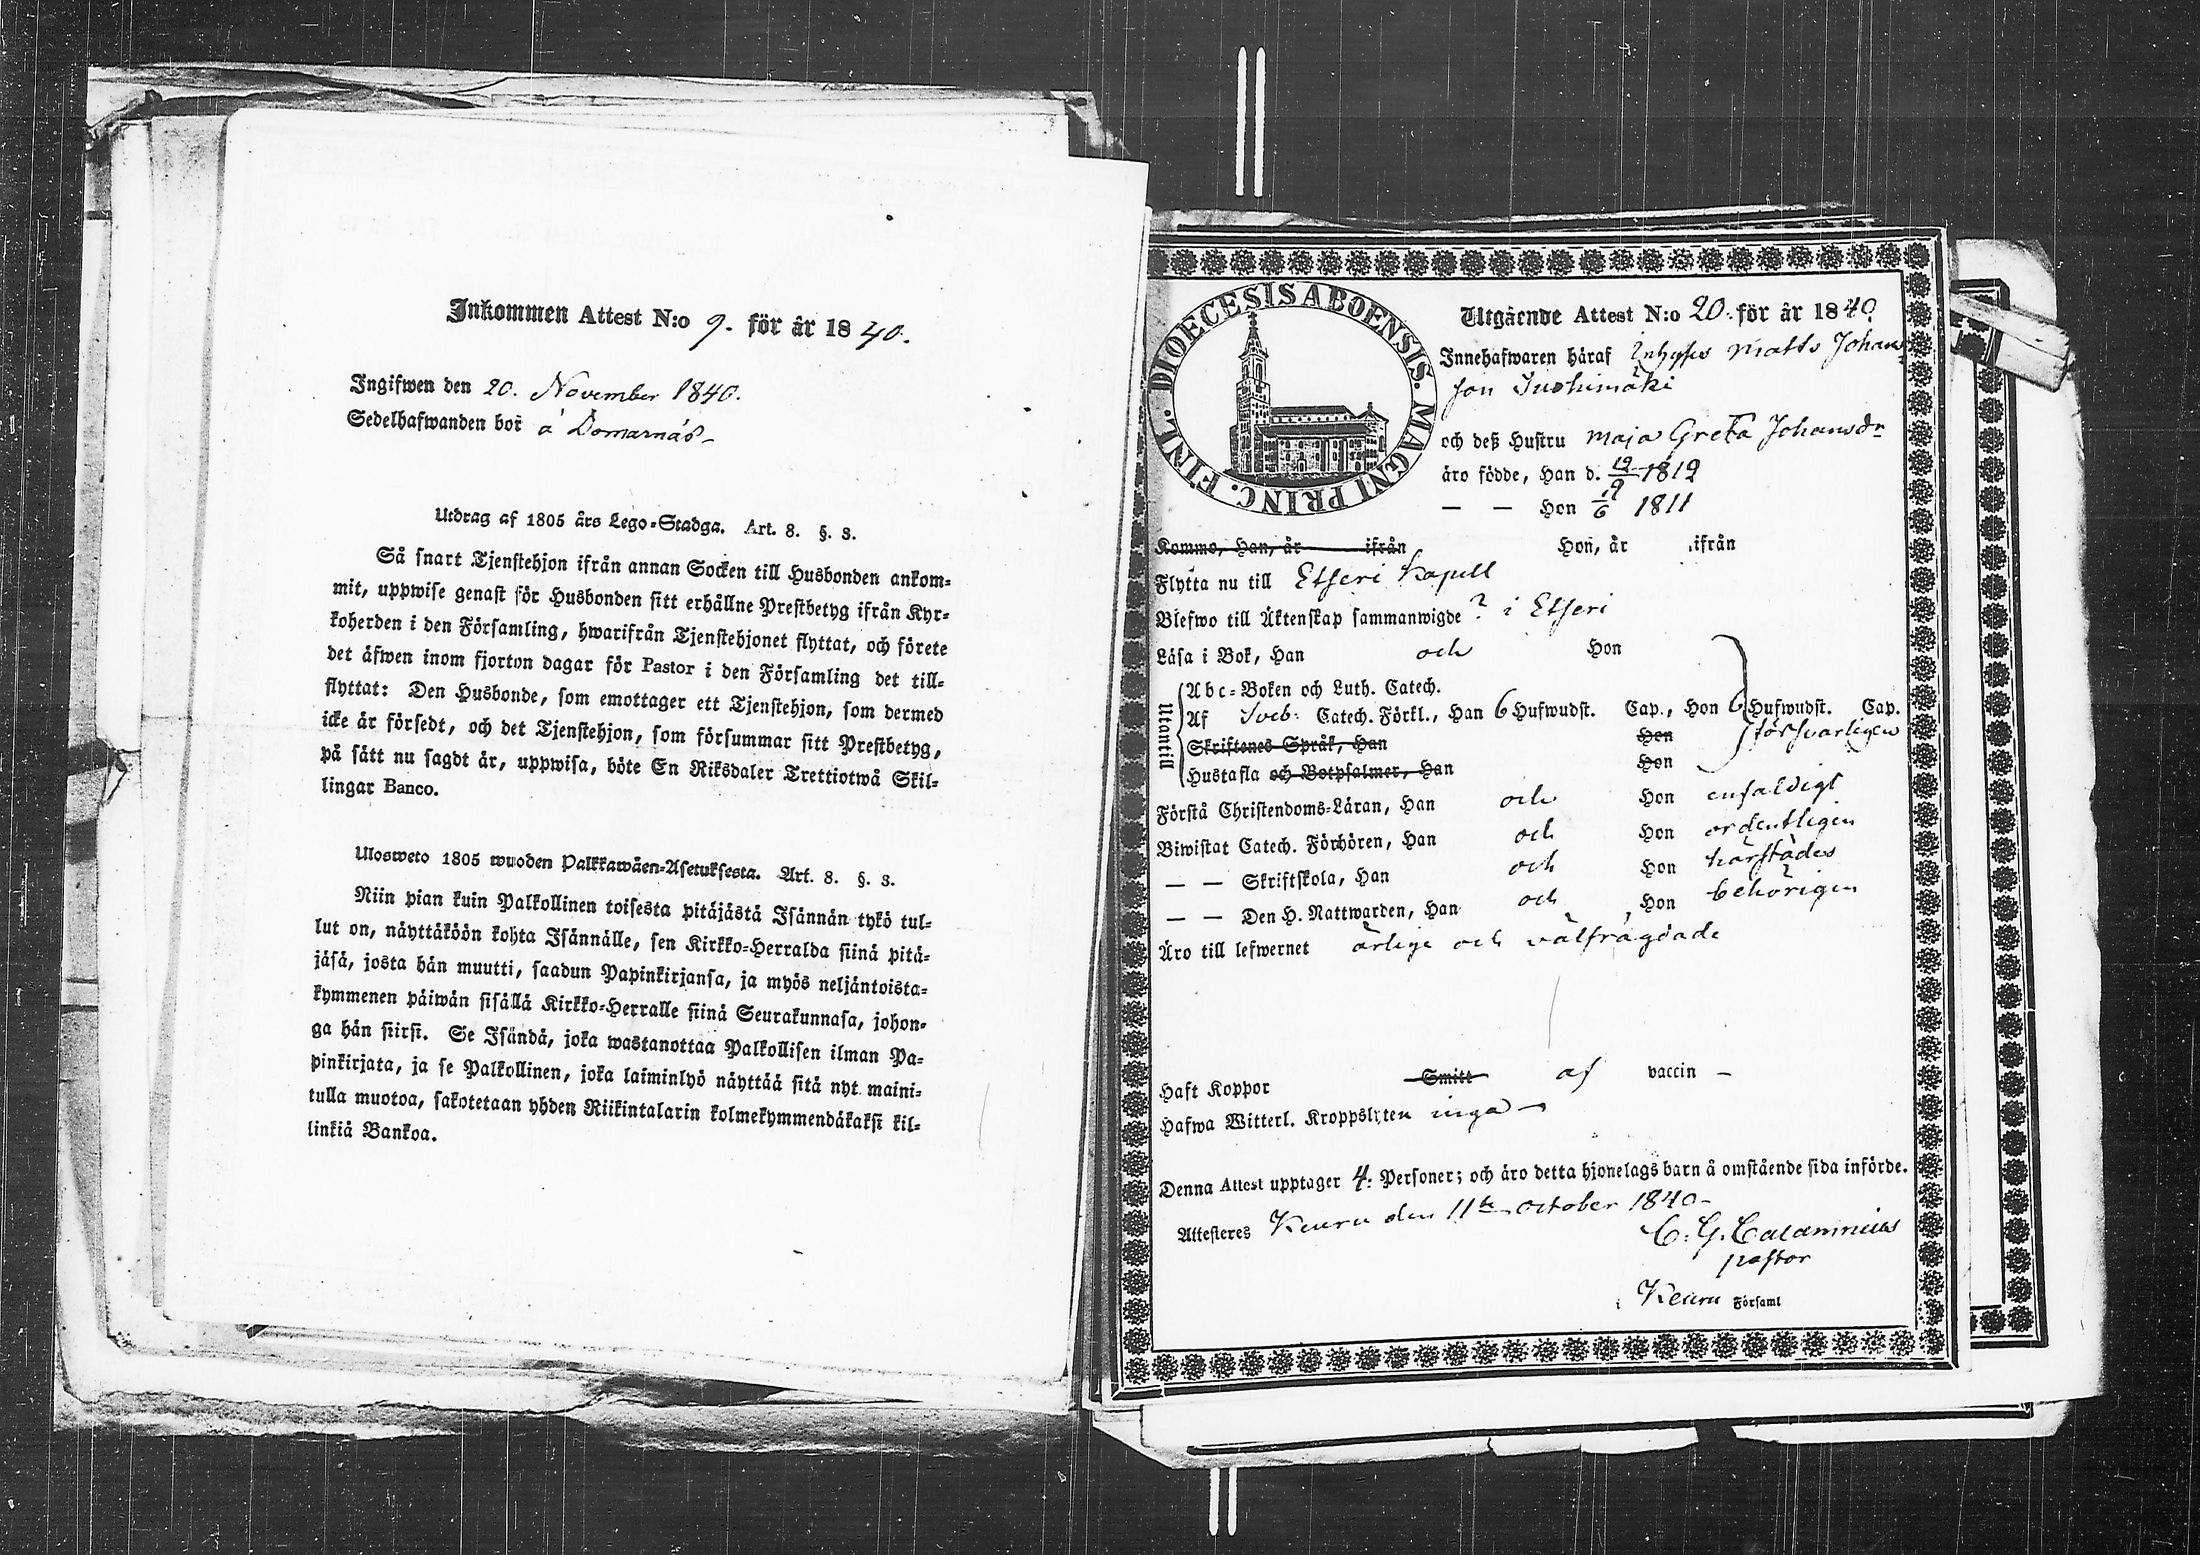 Inkommen Attest N:o 9. för år 1840.
Ingifwen den 20. November 1840.
Sedelhafwanden bor å Domarnäs
Utdrag af 1805 års Lego-Stadga. Art. 8. §. 3.
Så snart Tjenstehjon ifrån annan Socken till Husbonden ankom-
mit, uppwise genast för Husbonden sitt erhållne Prestbetyg ifrån Kyr-
koherden i den Församling, hwarifrån Tjenstehjonet flyttat, och förete
det äfwen inom fjorton dagar för Pastor i den Församling det till-
flyttat: Den Husbonde, som emottager ett Tjenstehjon, som dermed
icke är försedt, och det Tjenstehjon, som försummar sitt Prestbetyg,
på sätt nu sagdt är, uppwisa, böte En Riksdaler Trettiotwå Skil-
lingar Banco.
Ulosweto 1805 wuoden Palkkawäen-Asetuksesta. Art. 8. §. 3.
Niin pian kuin Palkollinen toisesta pitäjästä Isännän tykö tul-
lut on, näyttäköön kohta Isännälle, sen Kirkko-Herralda siinä pitä-
jäsä, josta hän muutti, saadun Papinkirjansa, ja myös neljäntoista-
kymmenen päiwän sisällä Kirkko-Herralle siinä Seurakunnasa, johon-
ga hän siirsi. Se Isändä, joka wastanottaa Palkollisen ilman Pa-
pinkirjata, ja se Palkollinen, joka laiminlyö näyttää sitä nyt maini-
tulla muotoa, sakotetaan yhden Riikintalarin kolmekymmendäkaksi kil-
linkiä Bankoa.
DIOECESIS ABOENSIS. MAGNI PRINC. FINL.
Utgående Attest N:o 20. för år 1840.
Innehafwaren häraf Inhyses Matts Johans
son
och deß Hustru Maja Greta Johansdr
äro födde, Han d. 19/9 1812
— — Hon 19/6 1811
Komme, Han, år ifrån Hon, år ifrån
Flytta nu till Etseri Kapell
Blefwo till Äktenskap sammanwigde ? i Etseri
Läsa i Bok, Han och Hon
Utantill
Abc-Boken och Luth. Catech.
Af Sveb: Catech. Förkl., Han 6 Hufwudst. Cap., Hon 6 Hufwudst. Cap.
Skriftenes Språk, Han Hon försvarligen
Hustafla och Botpsalmer, Han Hon
Förstå Christendoms-Läran, Han och Hon enfaldigt
Biwistat Catech. Förhören, Han och Hon ordentligen
— — Skriftskola, Han och Hon härstädes
— — Den H. Nattwarden, Han och Hon behörigen
Äro till lefwernet ärlige och välfrägdade
Haft Koppor Smitt af vaccin –
Hafwa Witterl. Kroppslyten inga –
Denna Attest upptager 4: Personer; och äro detta hjonelags barn å omstående sida införde.
Attesteres Keuru den 11te october 1840 –
C. G. Calamnius
pastor
i Keuru Församl